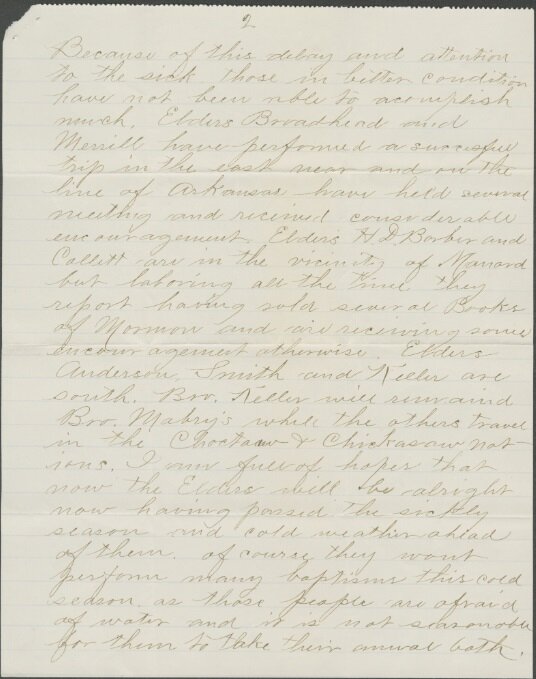 2
Because of this delay and attention
to the sick those in better condition
have not been able to acomplish
much. Elders Broadhead and
Merrill have performed a succesfull
trip in the east near and on the
line of Arkansas have held several
meeting and received considerable
encouragement. Elders H.D. Barber and
Collett are in the vicinity of Manard
but laboring all the time they
report having sold several Books
of Mormon and are receiving some
encouragement otherwise. Elders
Anderson, Smith and Keller are
south. Bro. Keller will remain
Bro. Mabry's while the others travel
in the Choctaw & Chickasaw Nat-
ions. I am full of hopes that
now the Elders will be alright
now having passed the sickly
season and cold weather ahead
of them. of course they wont
perform many baptisms this cold
season as those people are afraid
of water and it is not seasonable
for them to take their anual bath.